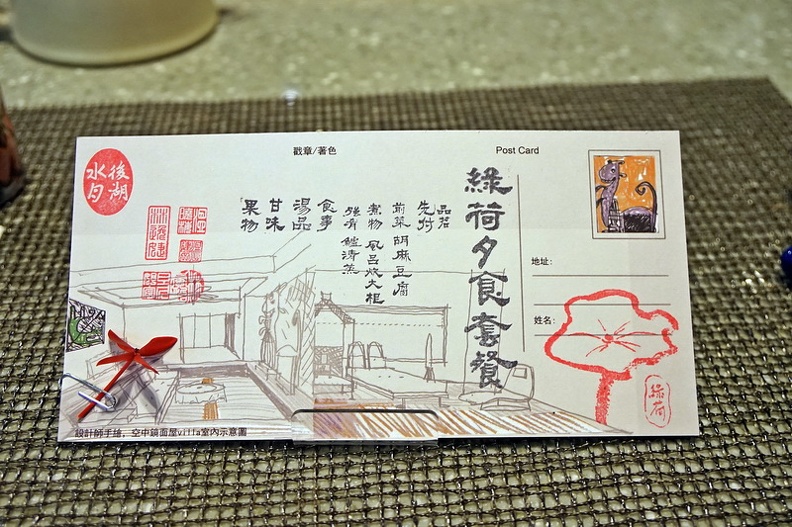 戳章/著色
Post Card
後湖
水月
綠荷夕食套餐
品茗
先付
前菜 胡麻豆腐
煮物 風呂炊大根
食事
湯品
甘味
果物
地址:
姓名:
綠荷
設計師手繪，空中鏡面屋villa室內示意圖